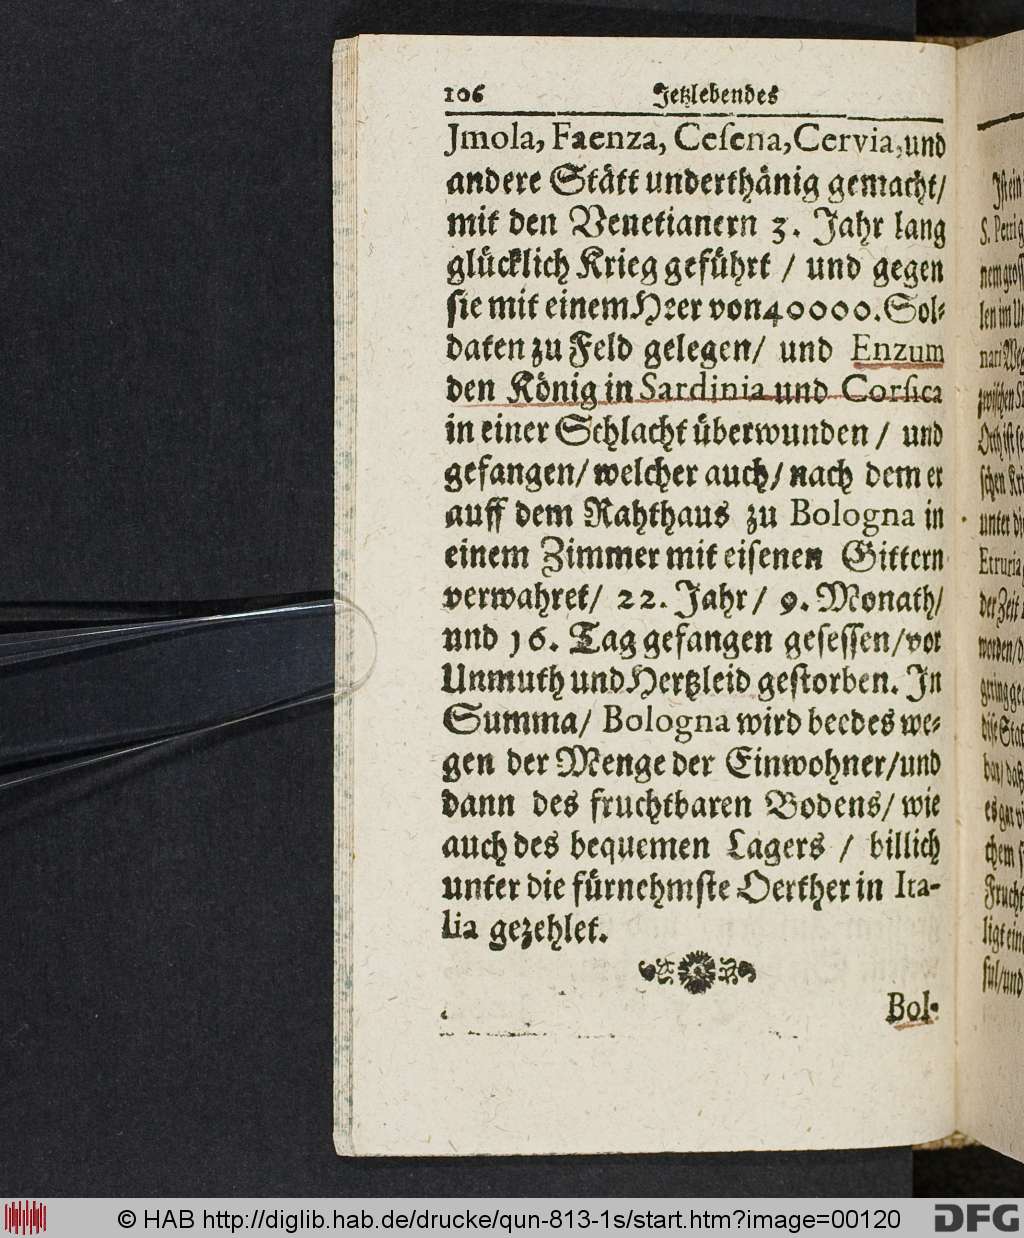 106 Jetzlebendes
Jmola, Faenza, Ceſena, Cervia, und
andere Stätt underthänig gemacht/
mit den Venetianern 3. Jahr lang
glücklich Krieg geführt / und gegen
ſie mit einem Heer von 40000. Sol-
daten zu Feld gelegen/ und Enzum
den König in Sardinia und Corſica
in einer Schlacht überwunden / und
gefangen/ welcher auch/ nach dem er
auff dem Rahthaus zu Bologna in
einem Zimmer mit eiſenen Gittern
verwahret/ 22. Jahr / 9. Monath/
und 16. Tag gefangen geſeſſen/ vor
Unmuth und Hertzleid geſtorben. In
Summa/ Bologna wird beedes we-
gen der Menge der Einwohner/ und
dann des fruchtbaren Bodens/ wie
auch des bequemen Lagers / billich
unter die fürnehmſte Oerther in Ita-
lia gezehlet.
Bol-
S. Petri
Etruria
© HAB http://diglib.hab.de/drucke/qun-813-1s/start.htm?image=00120
DFG